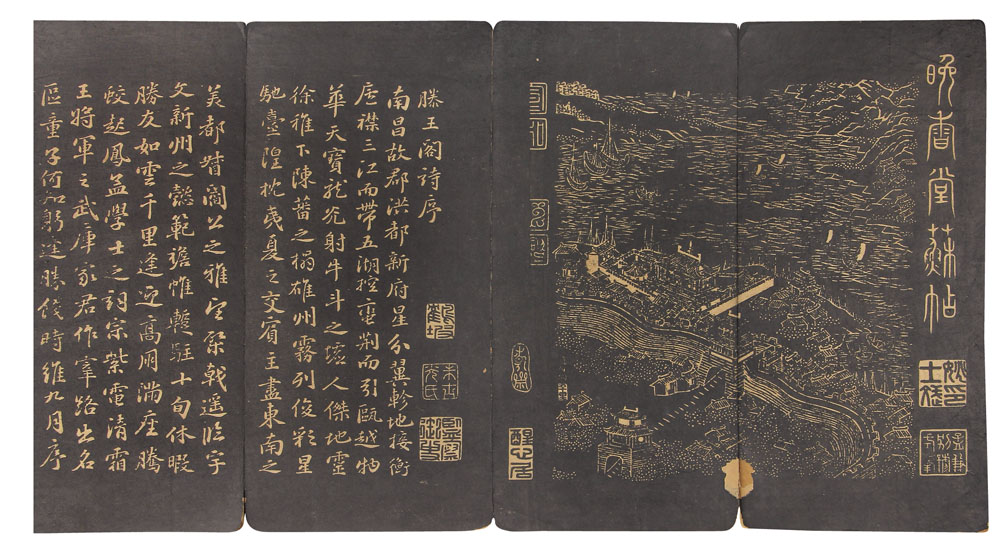 晚香堂蘇帖
滕王閣詩序
南昌故郡洪都新府星分翼軫地接衡
廬襟三江而帶五湖控蠻荆而引甌越物
華天寶龍光射牛斗之墟人傑地靈
徐稚下陳蕃之榻雄州霧列俊彩星
馳臺隍枕夷夏之交賓主盡東南之
美都督閻公之雅望棨戟遥臨宇
文新州之懿範襜帷暫駐十旬休暇
勝友如雲千里逢迎高朋滿座騰
蛟起鳳孟學士之詞宗紫電清霜
王將軍之武庫家君作宰路出名
區童子何知躬逢勝餞時維九月序